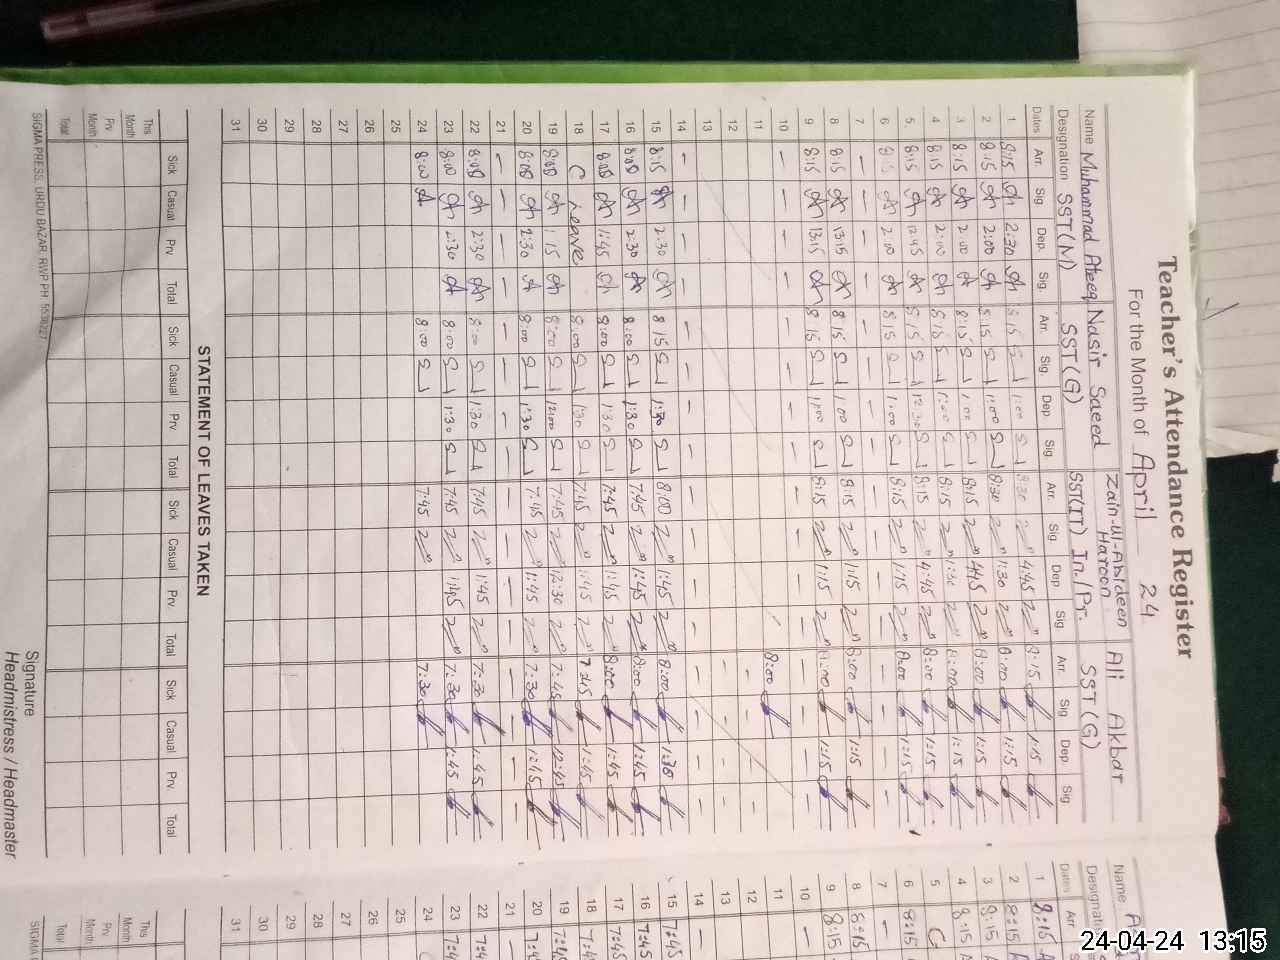 Teacher's Attendance Register
For the Month of April 24
Name Muhammad Ateeq Nasir Saeed Zain-ul-Abideen Haroon Ali Akbar
Designation SST(M) SST(G) SST(IT) In./Pr. SST(G)
Dates Arr. Sig Dep. Sig. Arr. Sig. Dep. Sig. Arr. Sig. Dep Sig Arr. Sig Dep Sig
1 8:15 2:30 8:15 1:00 8:30 4:45 8:15 1:15
2 8:15 2:00 8:15 1:00 8:30 1:30 8:00 1:15
3 8:15 2:00 8:15 1:00 8:15 4:45 8:00 1:15
4 8:15 2:00 8:15 1:00 8:15 1:30 8:00 1:15
5. 8:15 12:45 8:15 12:30 8:15 4:45 8:00 1:15
6 8:15 2:00 8:15 1:00 8:15 1:15 8:00 1:15
7 — — — — — — — —
8 8:15 13:15 8:15 1:00 8:15 1:15 8:00 1:15
9 8:15 13:15 8:15 1:00 8:15 1:15 8:00 1:15
10 — — — — — — — —
11 8:00
12
13
14 — — — — — — — —
15 8:15 2:30 8:15 1:30 8:00 1:45 8:00 1:30
16 8:00 2:30 8:00 1:30 7:45 1:45 8:00 1:45
17 8:00 1:45 8:00 1:30 7:45 1:45 8:00 1:45
18 C Leave 8:00 1:30 7:45 1:45 7:45 1:45
19 8:00 1:15 8:00 12:00 7:45 12:30 7:45 12:45
20 8:00 2:30 8:00 1:30 7:45 1:45 7:30 1:45
21 — — — — — — — —
22 8:00 2:30 8:00 1:30 7:45 1:45 7:30 1:45
23 8:00 2:30 8:00 1:30 7:45 1:45 7:30 1:45
24 8:00 8:00 7:45 7:30
25
26
27
28
29
30
31
STATEMENT OF LEAVES TAKEN
Sick Casual Prv Total Sick Casual Prv Total Sick Casual Prv Total Sick Casual Prv Total
This Month
Prv Month
Total
Signature
Headmistress / Headmaster
SIGMA PRESS, URDU BAZAR, RWP PH: 5530227
Name
Designation
Dates Arr
1 8:15
2 8:15
3 8:15
4 8:15
5 C
6 8:15
7 —
8 8:15
9 8:15
10 —
11
12
13
14 —
15 7:45
16 7:45
17 7:45
18
19
20
21
22
23
24
25
26
27
28
29
30
31
This Month
Prv Month
Total
24-04-24 13:15